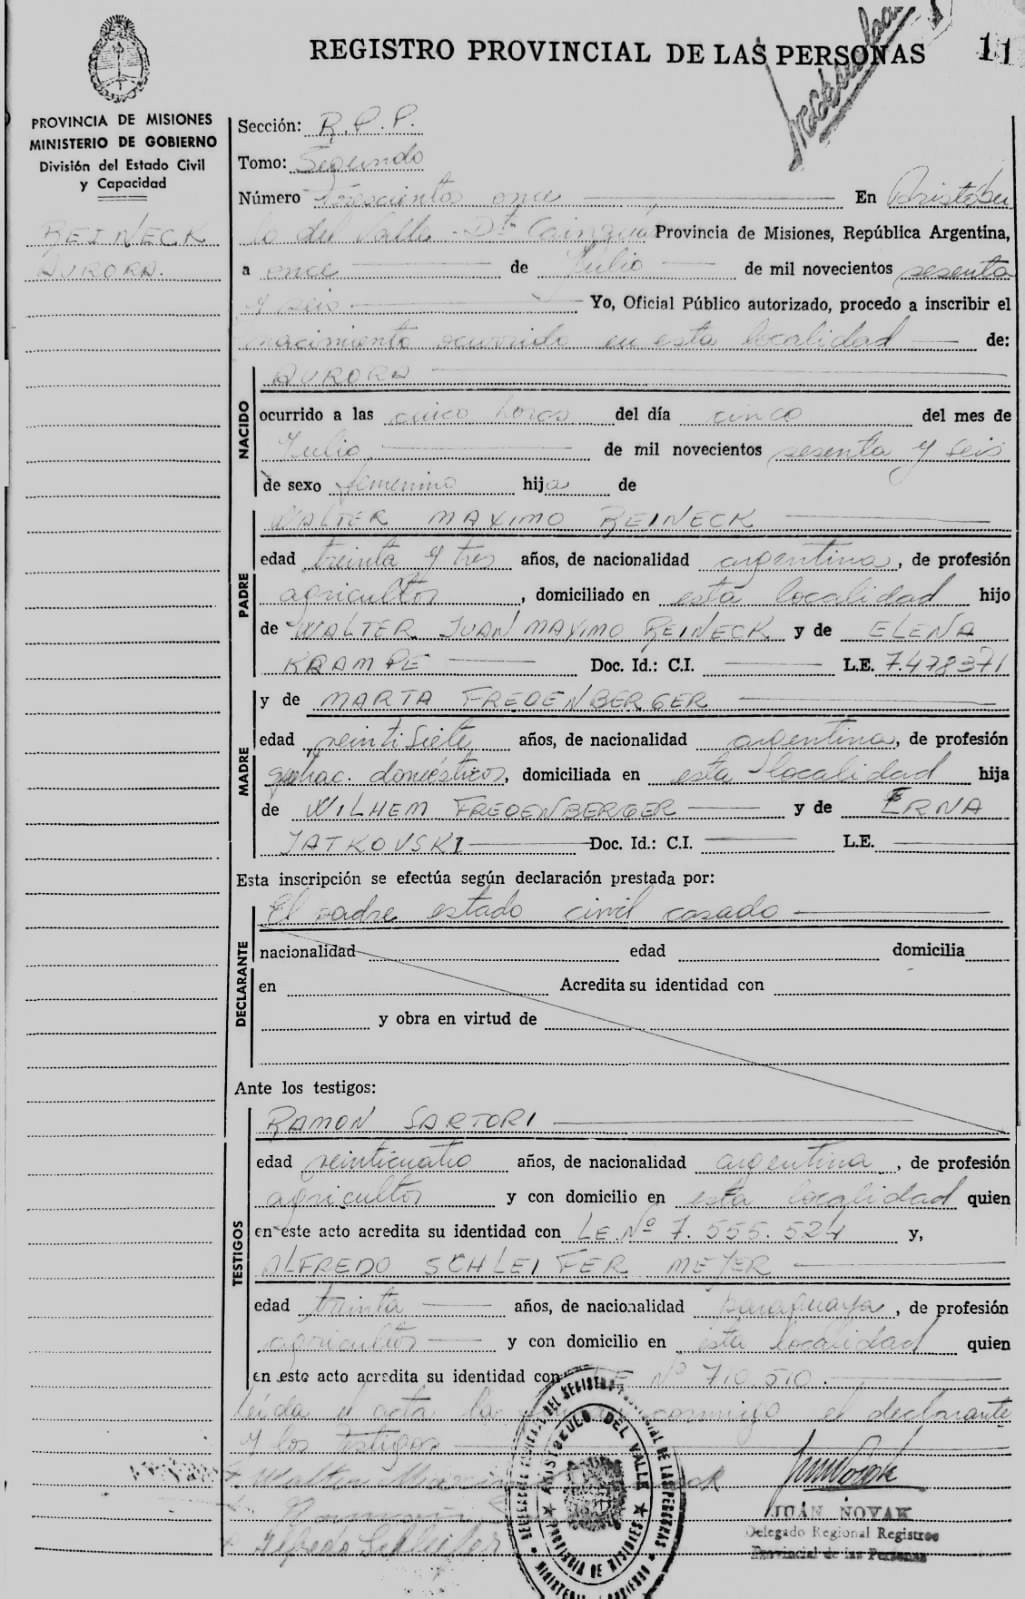 REGISTRO PROVINCIAL DE LAS PERSONAS
11
PROVINCIA DE MISIONES
MINISTERIO DE GOBIERNO
División del Estado Civil
y Capacidad
REINECK
AURORA.
Sección: R.P.P.
Tomo: Segundo
Número Trescientos once En Aristóbu
lo del Valle - Dto Cainguás Provincia de Misiones, República Argentina,
a once de Julio de mil novecientos sesenta
y seis Yo, Oficial Público autorizado, procedo a inscribir el
nacimiento ocurrido en esta localidad de:
NACIDO
AURORA
ocurrido a las cinco horas del día cinco del mes de
Julio de mil novecientos sesenta y seis
de sexo femenino hija de
PADRE
WALTER MAXIMO REINECK
edad treinta y tres años, de nacionalidad argentina, de profesión
agricultor, domiciliado en esta localidad hijo
de WALTER JUAN MAXIMO REINECK y de ELENA
KRAMPE Doc. Id.: C.I. L.E. 7.478371
MADRE
y de MARTA FREDENBERGER
edad veintisiete años, de nacionalidad argentina, de profesión
quehac. domésticos, domiciliada en esta localidad hija
de WILHEM FREDENBERGER y de ERNA
JATKOVSKI Doc. Id.: C.I. L.E.
Esta inscripción se efectúa según declaración prestada por:
DECLARANTE
El padre estado civil casado
nacionalidad edad domicilia
en Acredita su identidad con
y obra en virtud de
Ante los testigos:
TESTIGOS
RAMON SARTORI
edad veinticuatro años, de nacionalidad argentina, de profesión
agricultor y con domicilio en esta localidad quien
en este acto acredita su identidad con LE. Nº 7.555.524 y,
ALFREDO SCHLEIFER MEYER
edad treinta años, de nacionalidad paraguaya, de profesión
agricultor y con domicilio en esta localidad quien
en este acto acredita su identidad con Nº 710.510.
leída el acta la conmigo el declarante
y los testigos
Walter
Alfredo Schleifer
ARISTOBULO DEL VALLE
PROVINCIA DE MISIONES
JUAN NOVAK
Delegado Regional Registro
Provincial de las Personas